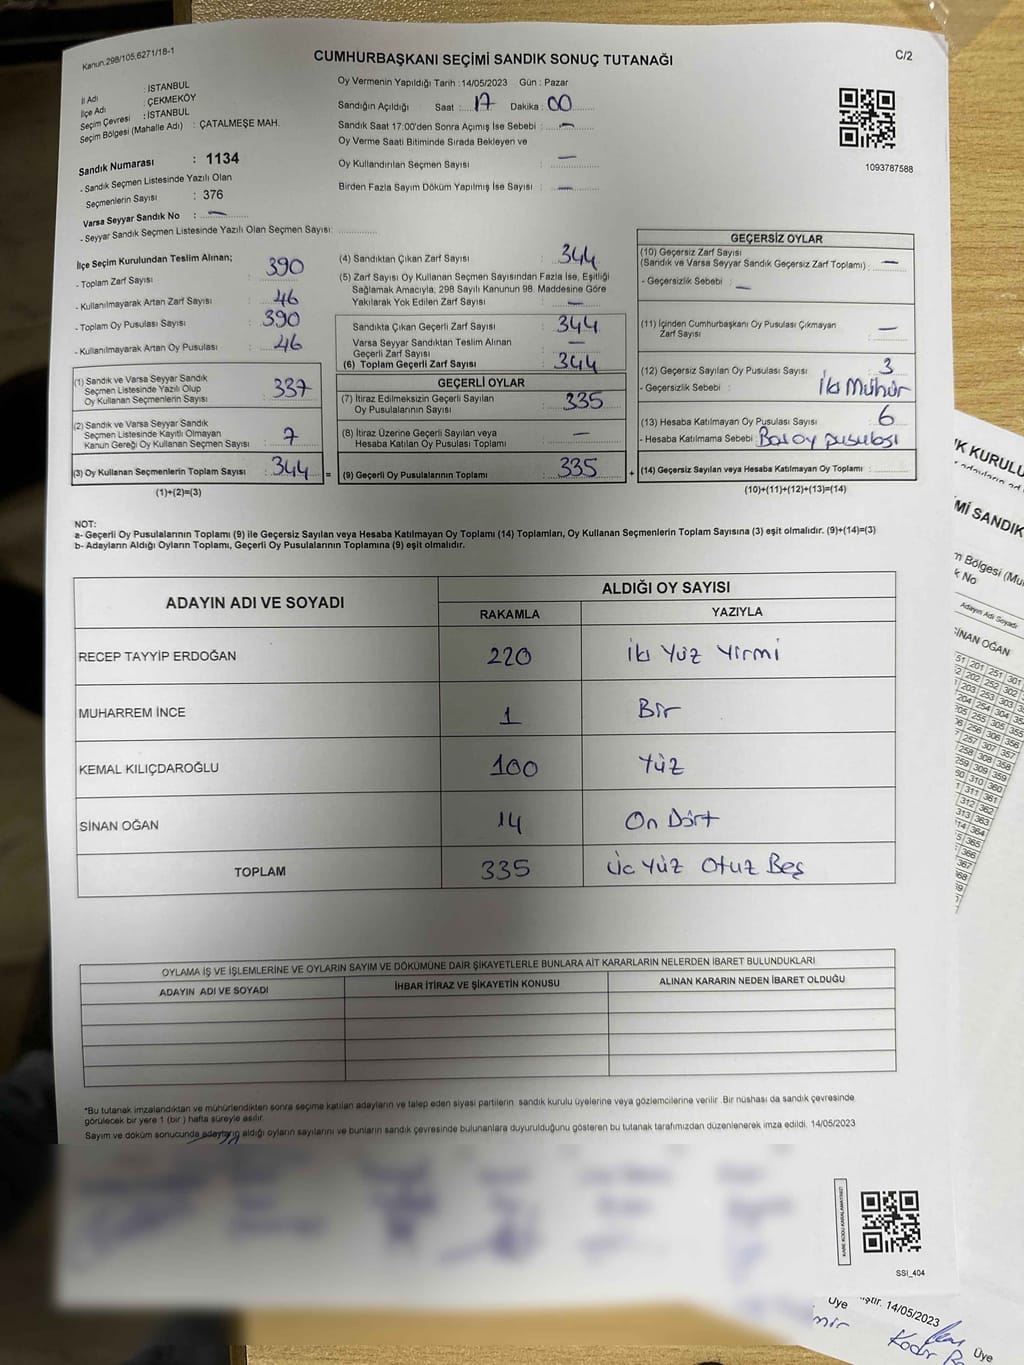 Kanun.298/105,6271/18-1
CUMHURBAŞKANI SEÇİMİ SANDIK SONUÇ TUTANAĞI
C/2
İl Adı : İSTANBUL
İlçe Adı : ÇEKMEKÖY
Seçim Çevresi : İSTANBUL
Seçim Bölgesi (Mahalle Adı) : ÇATALMEŞE MAH.
Sandık Numarası : 1134
- Sandık Seçmen Listesinde Yazılı Olan
Seçmenlerin Sayısı : 376
Varsa Seyyar Sandık No : —
- Seyyar Sandık Seçmen Listesinde Yazılı Olan Seçmen Sayısı:
Oy Vermenin Yapıldığı Tarih :14/05/2023 Gün : Pazar
Sandığın Açıldığı Saat : 17 Dakika : 00
Sandık Saat 17:00'den Sonra Açımış İse Sebebi : —
Oy Verme Saati Bitiminde Sırada Bekleyen ve
Oy Kullandırılan Seçmen Sayısı : —
Birden Fazla Sayım Döküm Yapılmış İse Sayısı : —
1093787588
İlçe Seçim Kurulundan Teslim Alınan;
- Toplam Zarf Sayısı : 390
- Kullanılmayarak Artan Zarf Sayısı : 46
- Toplam Oy Pusulası Sayısı : 390
- Kullanılmayarak Artan Oy Pusulası : 46
(1) Sandık ve Varsa Seyyar Sandık
Seçmen Listesinde Yazılı Olup
Oy Kullanan Seçmenlerin Sayısı : 337
(2) Sandık ve Varsa Seyyar Sandık
Seçmen Listesinde Kayıtlı Olmayan
Kanun Gereği Oy Kullanan Seçmen Sayısı : 7
(3) Oy Kullanan Seçmenlerin Toplam Sayısı : 344 =
(1)+(2)=(3)
(4) Sandıktan Çıkan Zarf Sayısı : 344
(5) Zarf Sayısı Oy Kullanan Seçmen Sayısından Fazla İse, Eşitliği
Sağlamak Amacıyla, 298 Sayılı Kanunun 98. Maddesine Göre
Yakılarak Yok Edilen Zarf Sayısı : —
Sandıkta Çıkan Geçerli Zarf Sayısı : 344
Varsa Seyyar Sandıktan Teslim Alınan
Geçerli Zarf Sayısı : —
(6) Toplam Geçerli Zarf Sayısı : 344
GEÇERLİ OYLAR
(7) İtiraz Edilmeksizin Geçerli Sayılan
Oy Pusulalarının Sayısı : 335
(8) İtiraz Üzerine Geçerli Sayılan veya
Hesaba Katılan Oy Pusulası Toplamı : —
(9) Geçerli Oy Pusulalarının Toplamı : 335 +
GEÇERSİZ OYLAR
(10) Geçersiz Zarf Sayısı
(Sandık ve Varsa Seyyar Sandık Geçersiz Zarf Toplamı) : —
- Geçersizlik Sebebi : —
(11) İçinden Cumhurbaşkanı Oy Pusulası Çıkmayan
Zarf Sayısı : —
(12) Geçersiz Sayılan Oy Pusulası Sayısı : 3
- Geçersizlik Sebebi : İki Mühür
(13) Hesaba Katılmayan Oy Pusulası Sayısı : 6
- Hesaba Katılmama Sebebi : Boş oy pusulası
(14) Geçersiz Sayılan veya Hesaba Katılmayan Oy Toplamı :
(10)+(11)+(12)+(13)=(14)
NOT:
a- Geçerli Oy Pusulasının Toplamı (9) ile Geçersiz Sayılan veya Hesaba Katılmayan Oy Toplamı (14) Toplamları, Oy Kullanan Seçmenlerin Toplam Sayısına (3) eşit olmalıdır. (9)+(14)=(3)
b- Adayların Aldığı Oyların Toplamı, Geçerli Oy Pusulalarının Toplamına (9) eşit olmalıdır.
ADAYIN ADI VE SOYADI
ALDIĞI OY SAYISI
RAKAMLA YAZIYLA
RECEP TAYYİP ERDOĞAN 220 İki Yüz Yirmi
MUHARREM İNCE 1 Bir
KEMAL KILIÇDAROĞLU 100 Yüz
SİNAN OĞAN 14 On Dört
TOPLAM 335 Üc Yüz Otuz Beş
OYLAMA İŞ VE İŞLEMLERİNE VE OYLARIN SAYIM VE DÖKÜMÜNE DAİR ŞİKAYETLERLE BUNLARA AİT KARARLARIN NELERDEN İBARET BULUNDUKLARI
ADAYIN ADI VE SOYADI İHBAR İTİRAZ VE ŞİKAYETİN KONUSU ALINAN KARARIN NEDEN İBARET OLDUĞU
*Bu tutanak imzalandıktan ve mühürlendikten sonra seçime katılan adayların ve talep eden siyasi partilerin sandık kurulu üyelerine veya gözlemcilerine verilir. Bir nüshası da sandık çevresinde
görülecek bir yere 1 (bir) hafta süreyle asılır.
Sayım ve döküm sonucunda adayların aldığı oyların sayılarını ve bunların sandık çevresinde bulunanlara duyurulduğunu gösteren bu tutanak tarafımızdan düzenlenerek imza edildi. 14/05/2023
SSI_404
K KURULU
Mİ SANDIK
k No
Adayın Adı Soyadı
SİNAN OĞAN
14/05/2023
Üye
Üye